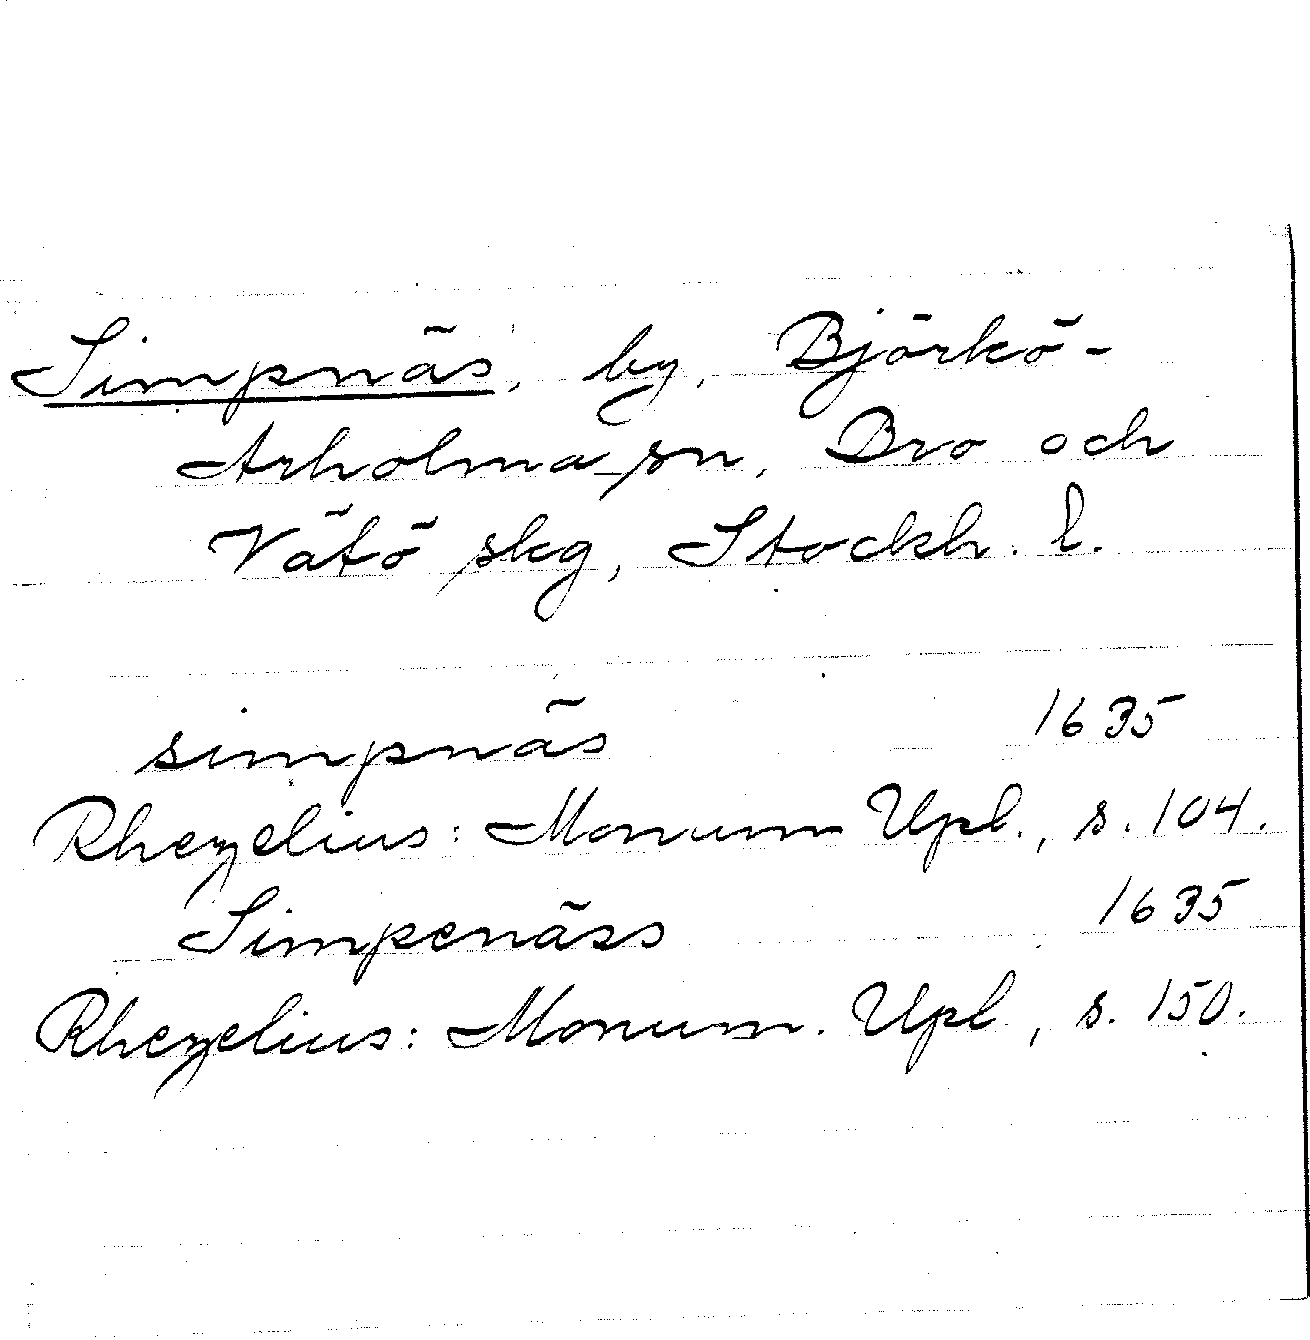 Simpnäs, by, Björkö-
Arholma sn, Bro och
Vätö skg, Stockh. l.
simpnäs 1635
Rhezelius: Monum Upl., s. 104.
Simpenäss 1635
Rhezelius: Monum. Upl., s. 150.